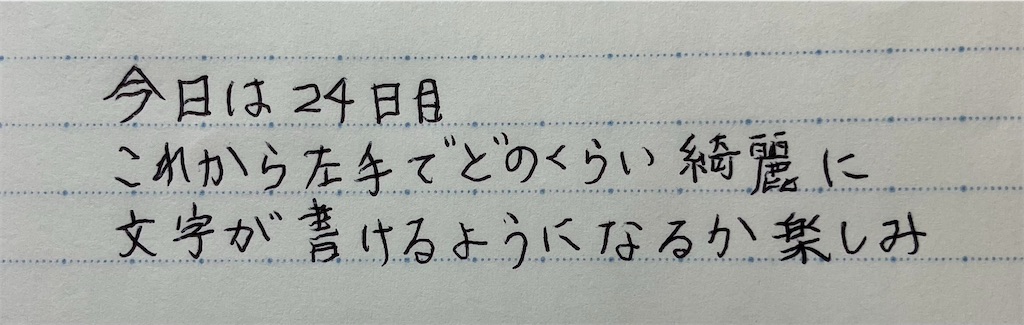 今日は24日目
これから左手でどのくらい綺麗に
文字が書けるようになるか楽しみ